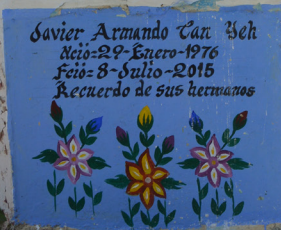 Javier Armando Can Yeh
Nció=29-Enero-1976
Feió=8-Julio-2015
Recuerdo de sus hermanos